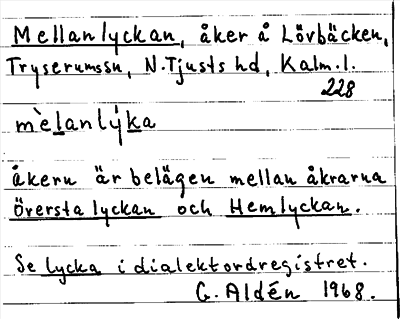 Mellanlyckan, åker å Lövbäcken,
Tryserumssn, N. Tjusts hd, Kalm. l.
228
mèlanlýka
åkern är belägen mellan åkrarna
översta lyckan och Hemlyckan.
Se lycka i dialektordregistret.
G. Aldén 1968.